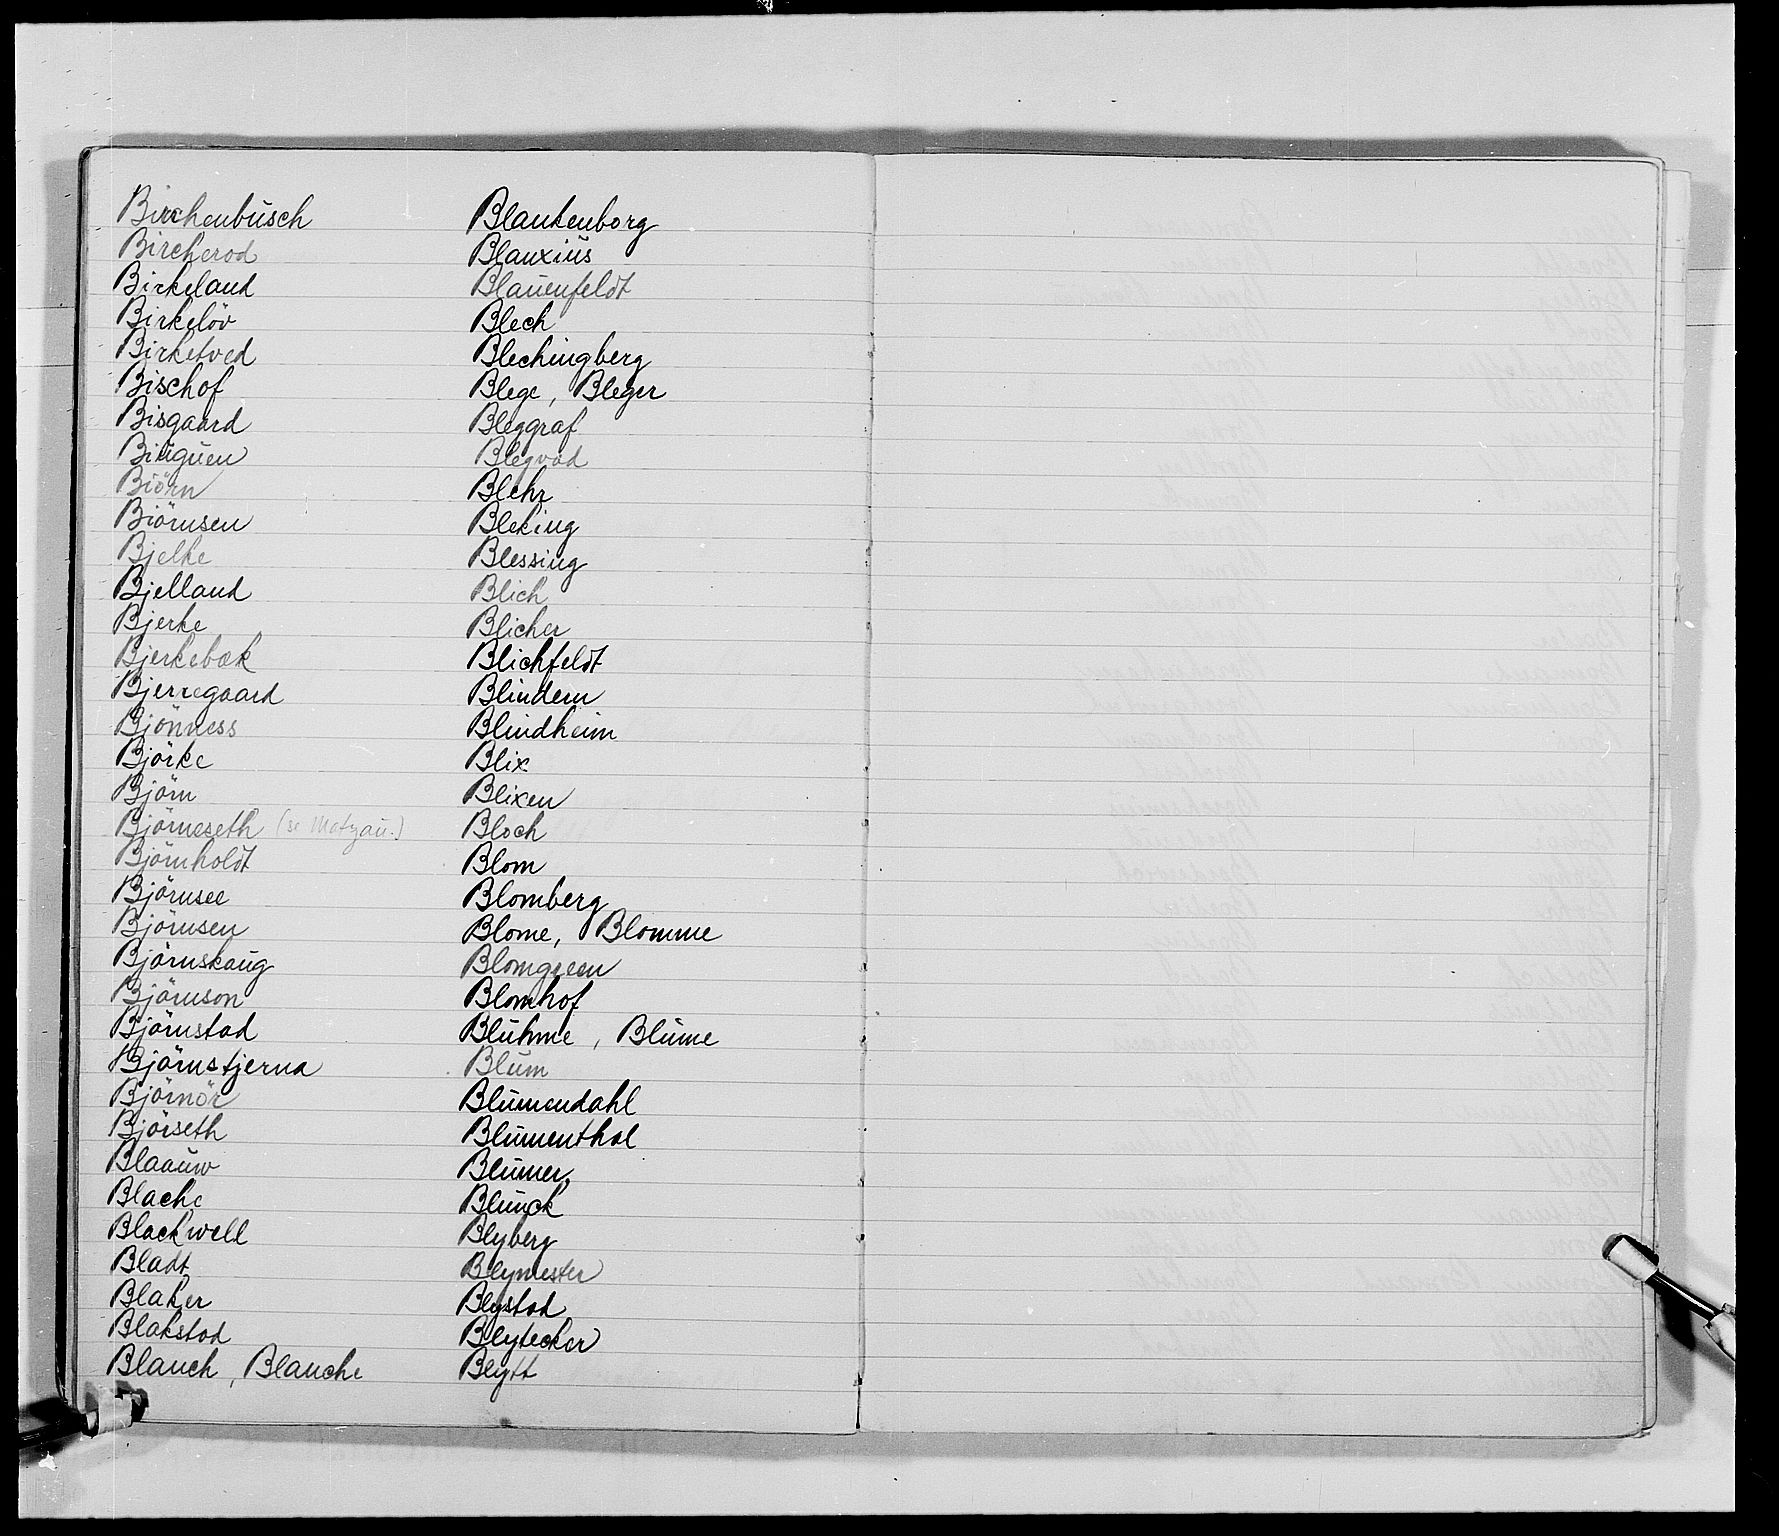 Birchenbusch
Bircherod
Birkeland
Birkelöv
Birketved
Bischof
Bisgaard
Biuguen
Biörn
Biörnsen
Bjelke
Bjelland
Bjerke
Bjerkebæk
Bjerregaard
Bjönness
Björke
Björn
Björneseth (se Motzau.)
Björnholdt
Björnsee
Björnsen
Björnskaug
Björnson
Björnstad
Björnstjerna
Björnör
Björseth
Blaauw
Blache
Blackwell
Bladt
Blaker
Blakstad
Blanch, Blanche
Blankenborg
Blanxius
Blauenfeldt
Blech
Blechingberg
Blege, Bleger
Bleggraf
Blegvad
Blehr
Bleking
Blessing
Blich
Blicher
Blichfeldt
Blindern
Blindheim
Blix
Blixen
Bloch
Blom
Blomberg
Blome, Blomme
Blomgreen
Blomhof
Bluhme, Blume
Blum
Blumendahl
Blumenthal
Blumer
Blunck
Blyberg
Blymester
Blystad
Blytecker
Blytt